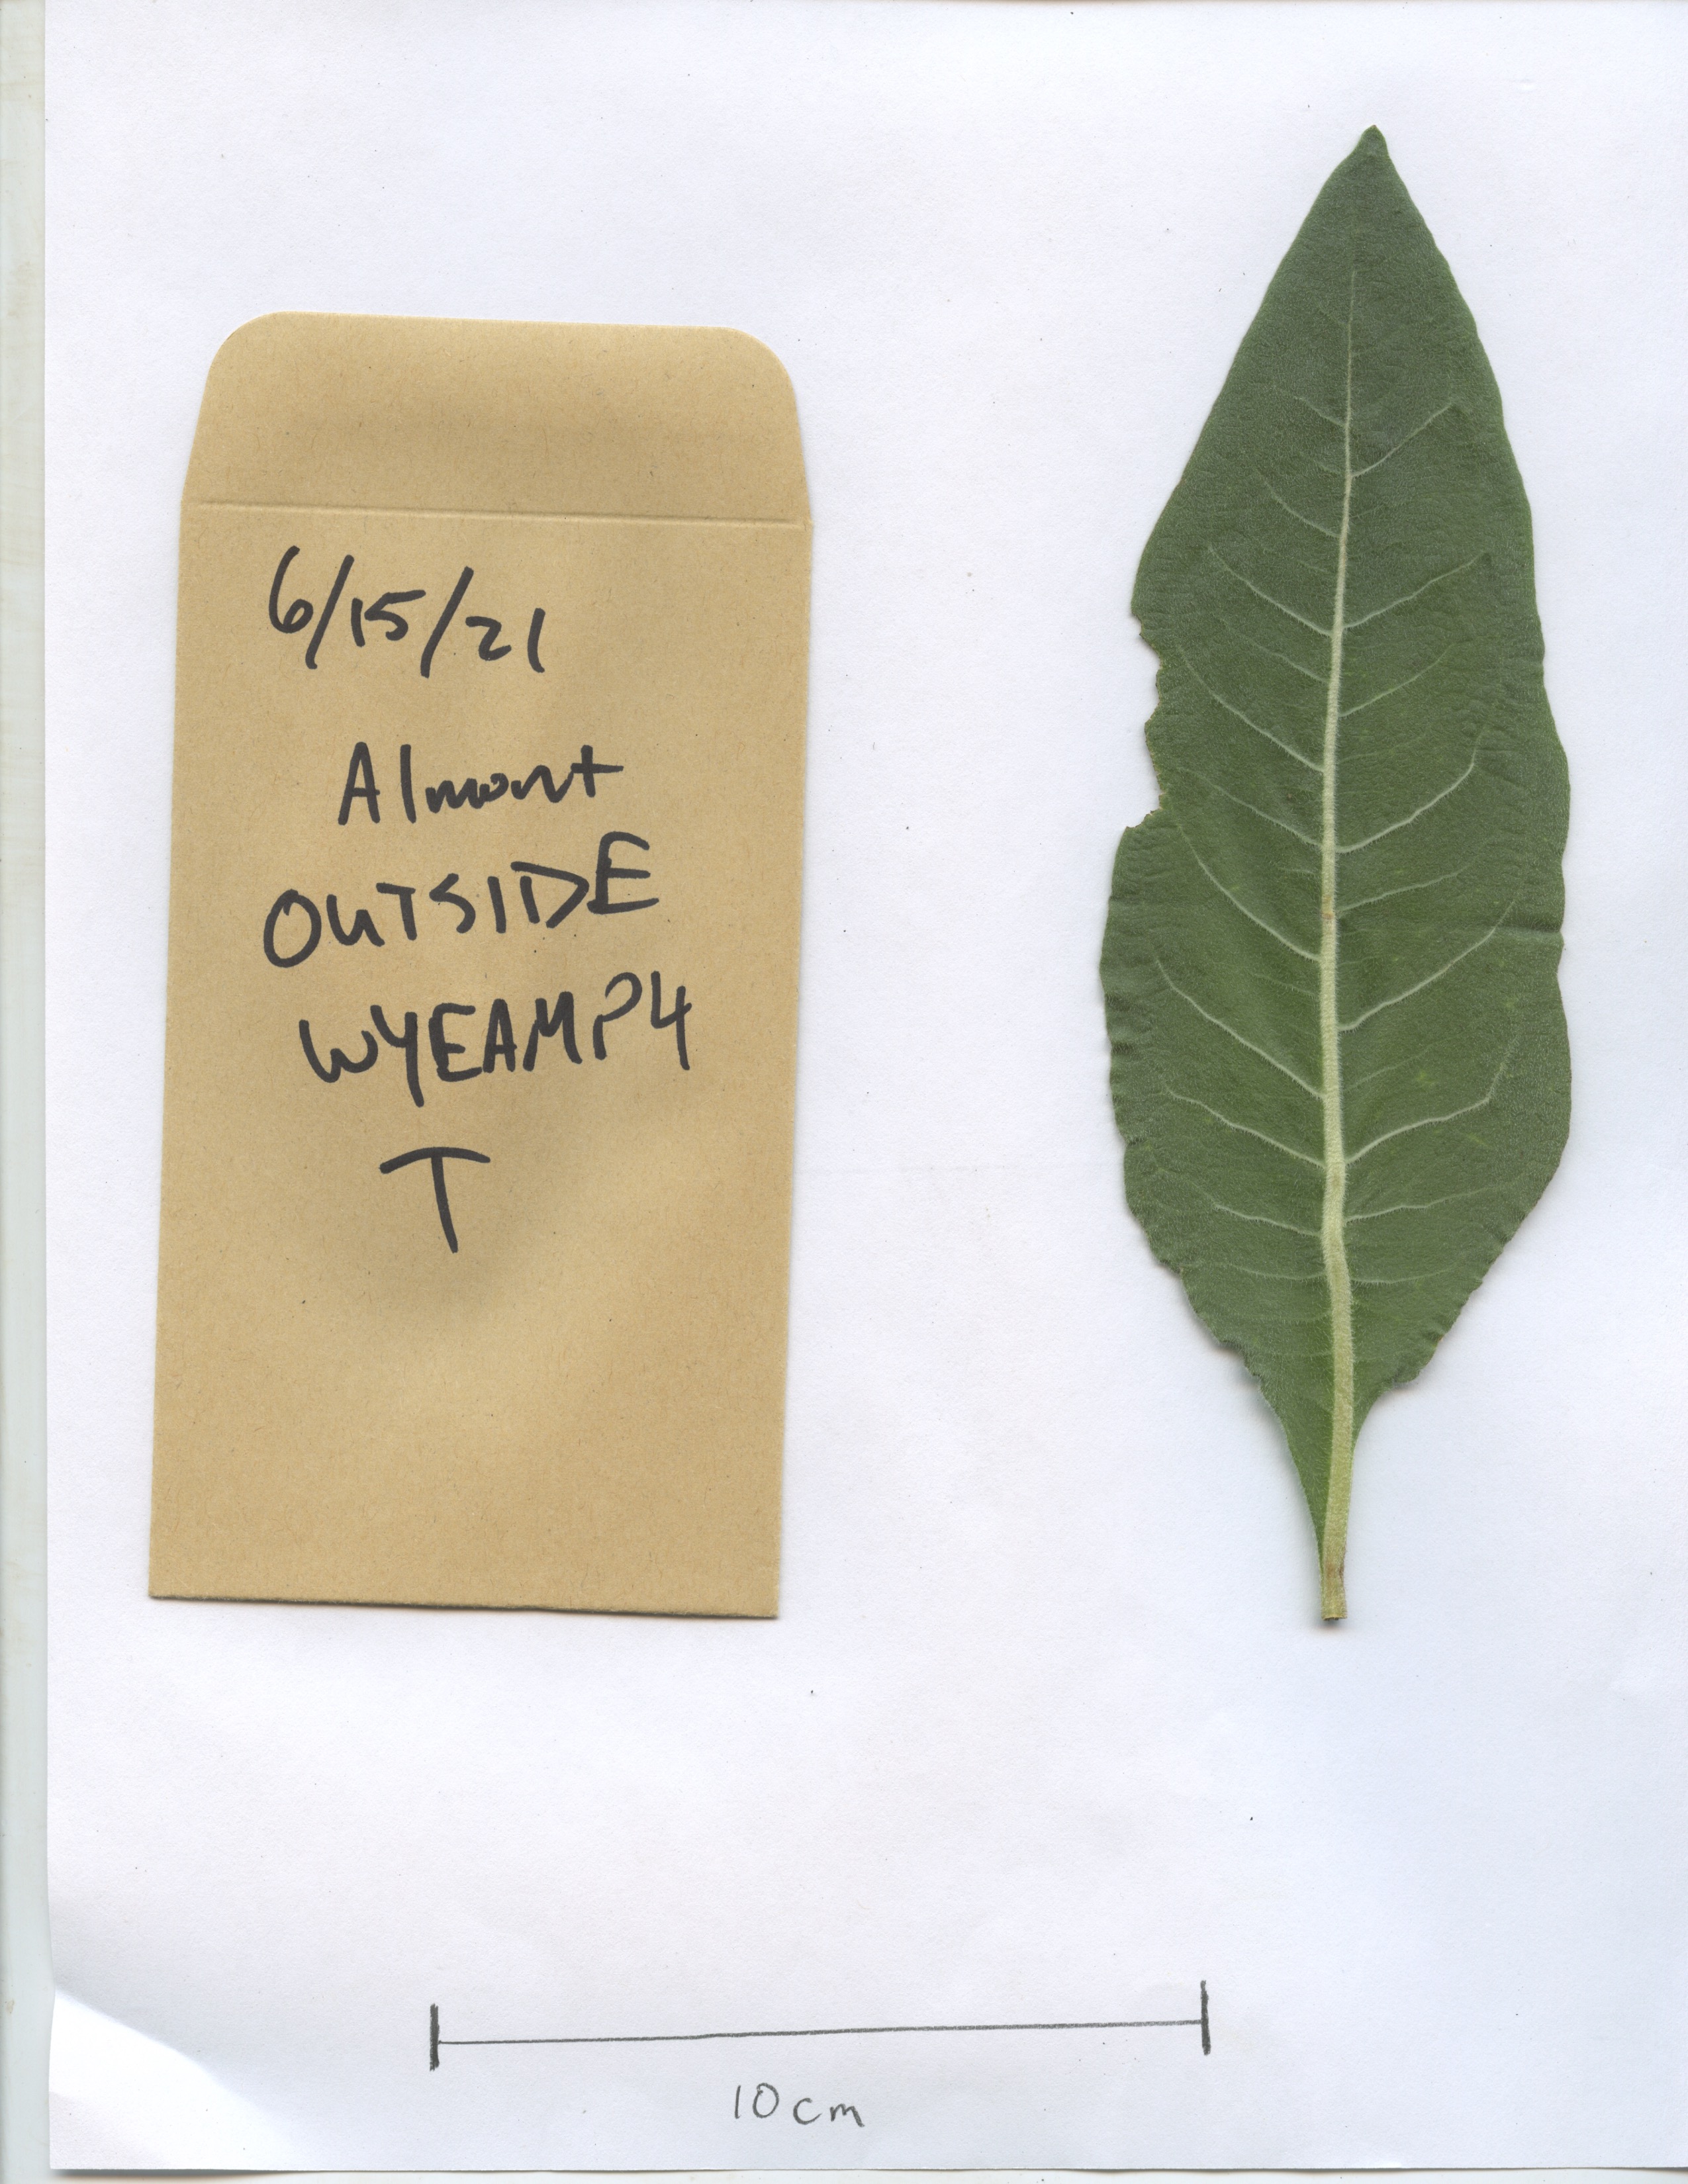 6/15/21
Almont
OUTSIDE
WYEAMP4
T
10cm